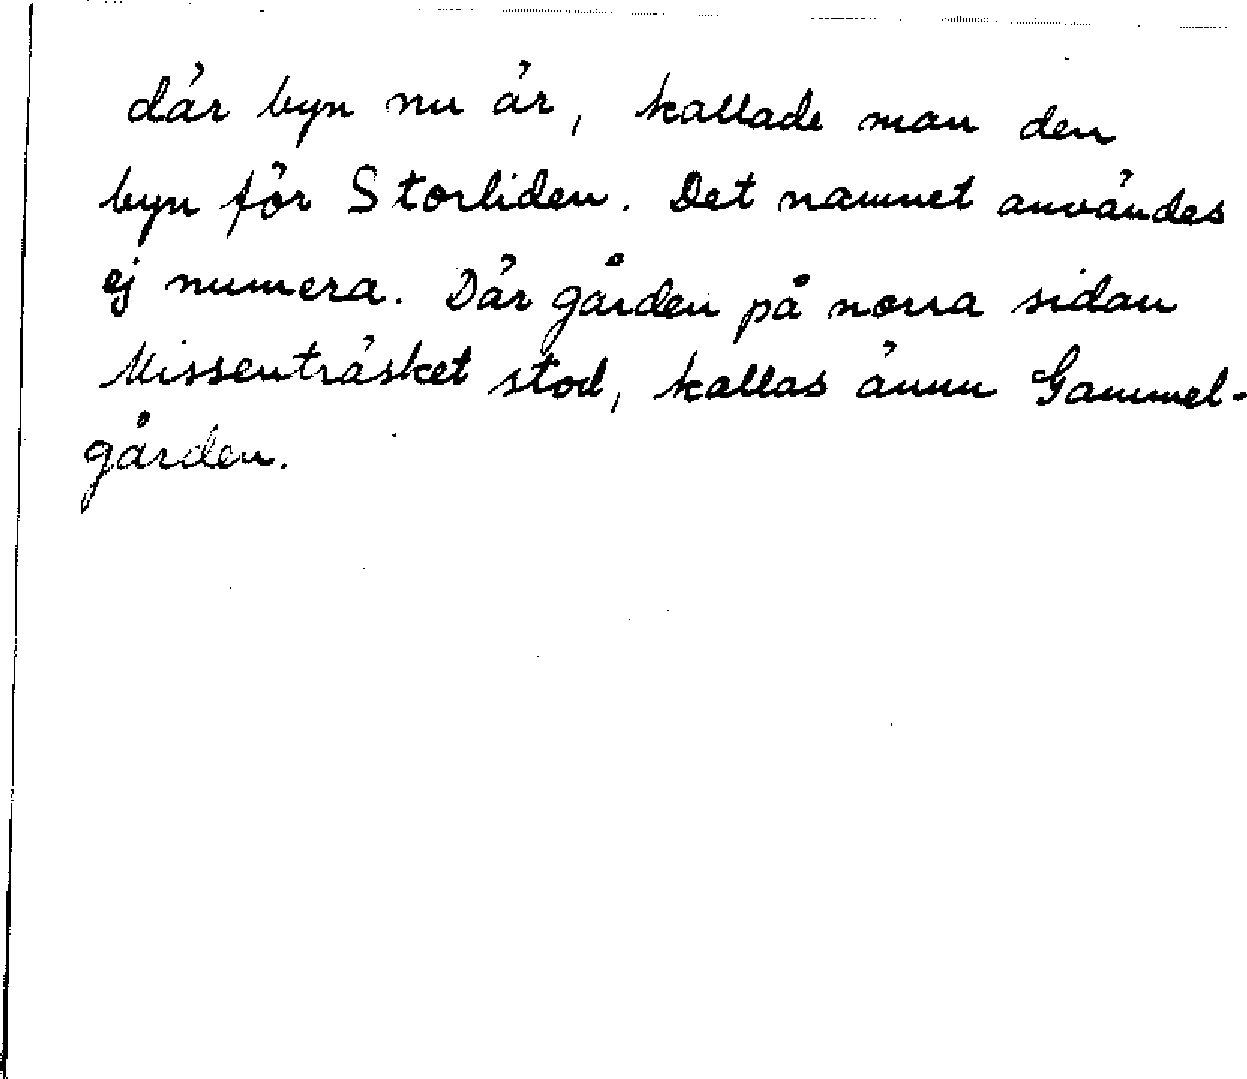 där byn nu är, kallade man den
byn för Storliden. Det namnet användes
ej numera. Där gården på norra sidan
Missenträsket stod, kallas ännu Gammel-
gården.